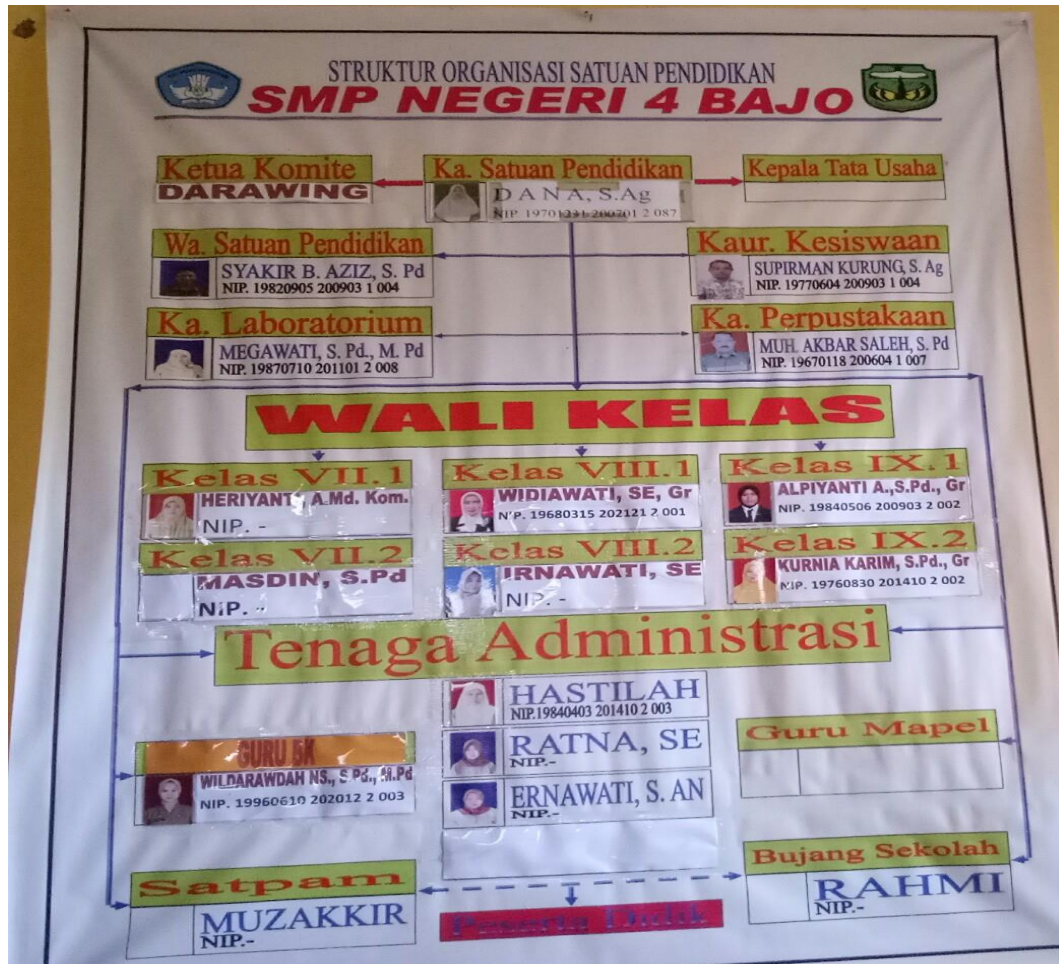 STRUKTUR ORGANISASI SATUAN PENDIDIKAN
SMP NEGERI 4 BAJO
Ketua Komite
DARAWING
Ka. Satuan Pendidikan
D A N A, S.Ag
NIP. 19701231 200701 2 087
Kepala Tata Usaha
Wa. Satuan Pendidikan
SYAKIR B. AZIZ, S. Pd
NIP. 19820905 200903 1 004
Kaur. Kesiswaan
SUPIRMAN KURUNG, S. Ag
NIP. 19770604 200903 1 004
Ka. Laboratorium
MEGAWATI, S. Pd., M. Pd
NIP. 19870710 201101 2 008
Ka. Perpustakaan
MUH. AKBAR SALEH, S. Pd
NIP. 19670118 200604 1 007
WALI KELAS
Kelas VII.1
HERIYANTI, A.Md. Kom.
NIP. -
Kelas VIII.1
WIDIAWATI, SE, Gr
NIP. 19680315 202121 2 001
Kelas IX.1
ALPIYANTI A.,S.Pd., Gr
NIP. 19840506 200903 2 002
Kelas VII.2
MASDIN, S.Pd
NIP. -
Kelas VIII.2
IRNAWATI, SE
NIP. -
Kelas IX.2
KURNIA KARIM, S.Pd., Gr
NIP. 19760830 201410 2 002
Tenaga Administrasi
HASTILAH
NIP.19840403 201410 2 003
RATNA, SE
NIP.-
ERNAWATI, S. AN
NIP.-
GURU BK
WILDARAWDAH NS., S.Pd., M.Pd
NIP. 19960610 202012 2 003
Guru Mapel
Satpam
MUZAKKIR
NIP.-
Bujang Sekolah
RAHMI
NIP.-
Peserta Didik